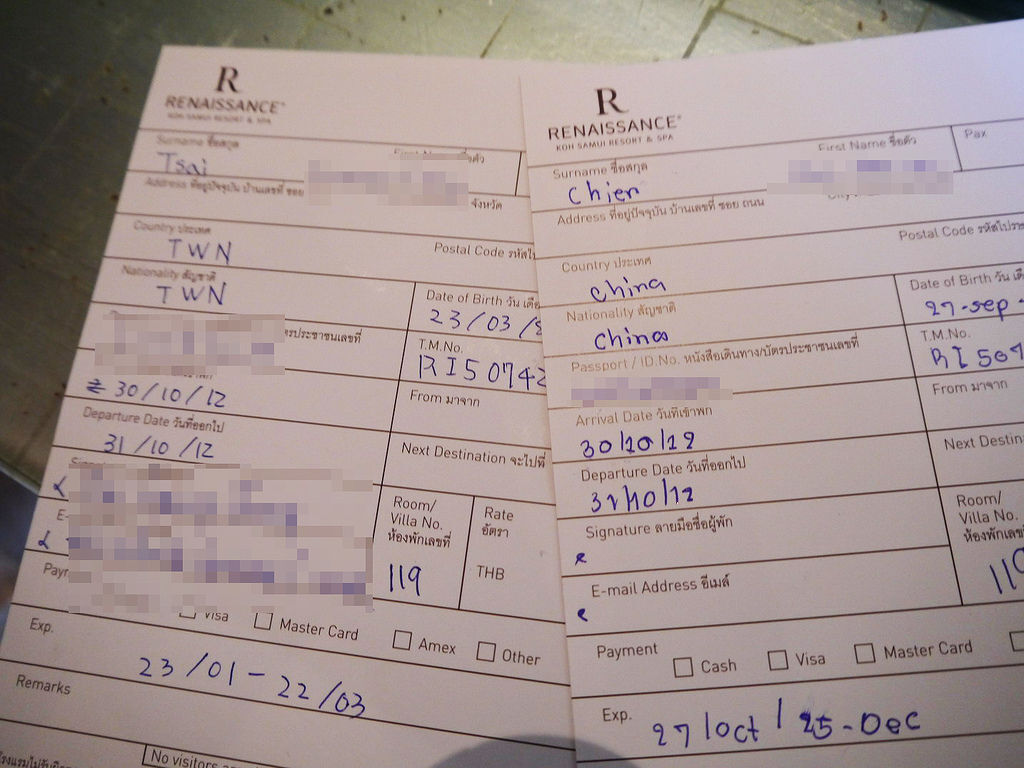 R
RENAISSANCE
KOH SAMUI RESORT & SPA
Surname ชื่อสกุล
Tsai
Address ที่อยู่ปัจจุบัน บ้านเลขที่ ซอย
จังหวัด
Country ประเทศ
TWN
Postal Code
Nationality สัญชาติ
TWN
Date of Birth วัน
23/03/
T.M.No.
RI50742
30/10/12
From มาจาก
Departure Date วันที่ออกไป
31/10/12
Next Destination จะไปที่
Room/
Villa No.
ห้องพักเลขที่
119
Rate
อัตรา
THB
Visa
Master Card
Amex
Other
Exp.
23/01 - 22/03
Remarks
No visitors
R
RENAISSANCE
KOH SAMUI RESORT & SPA
Surname ชื่อสกุล
Chien
First Name ชื่อตัว
Pax
Address ที่อยู่ปัจจุบัน บ้านเลขที่ ซอย ถนน
Country ประเทศ
China
Postal Code
Nationality สัญชาติ
China
Date of Birth วัน
27-sep-
Passport / ID.No. หนังสือเดินทาง/บัตรประชาชนเลขที่
T.M.No.
RI507
Arrival Date วันที่เข้าพัก
30/10/12
From มาจาก
Departure Date วันที่ออกไป
31/10/12
Next
Signature ลายมือชื่อผู้พัก
Room/
Villa No.
ห้องพักเลขที่
E-mail Address อีเมล์
Payment
Cash
Visa
Master Card
Exp.
27/oct / 25-Dec